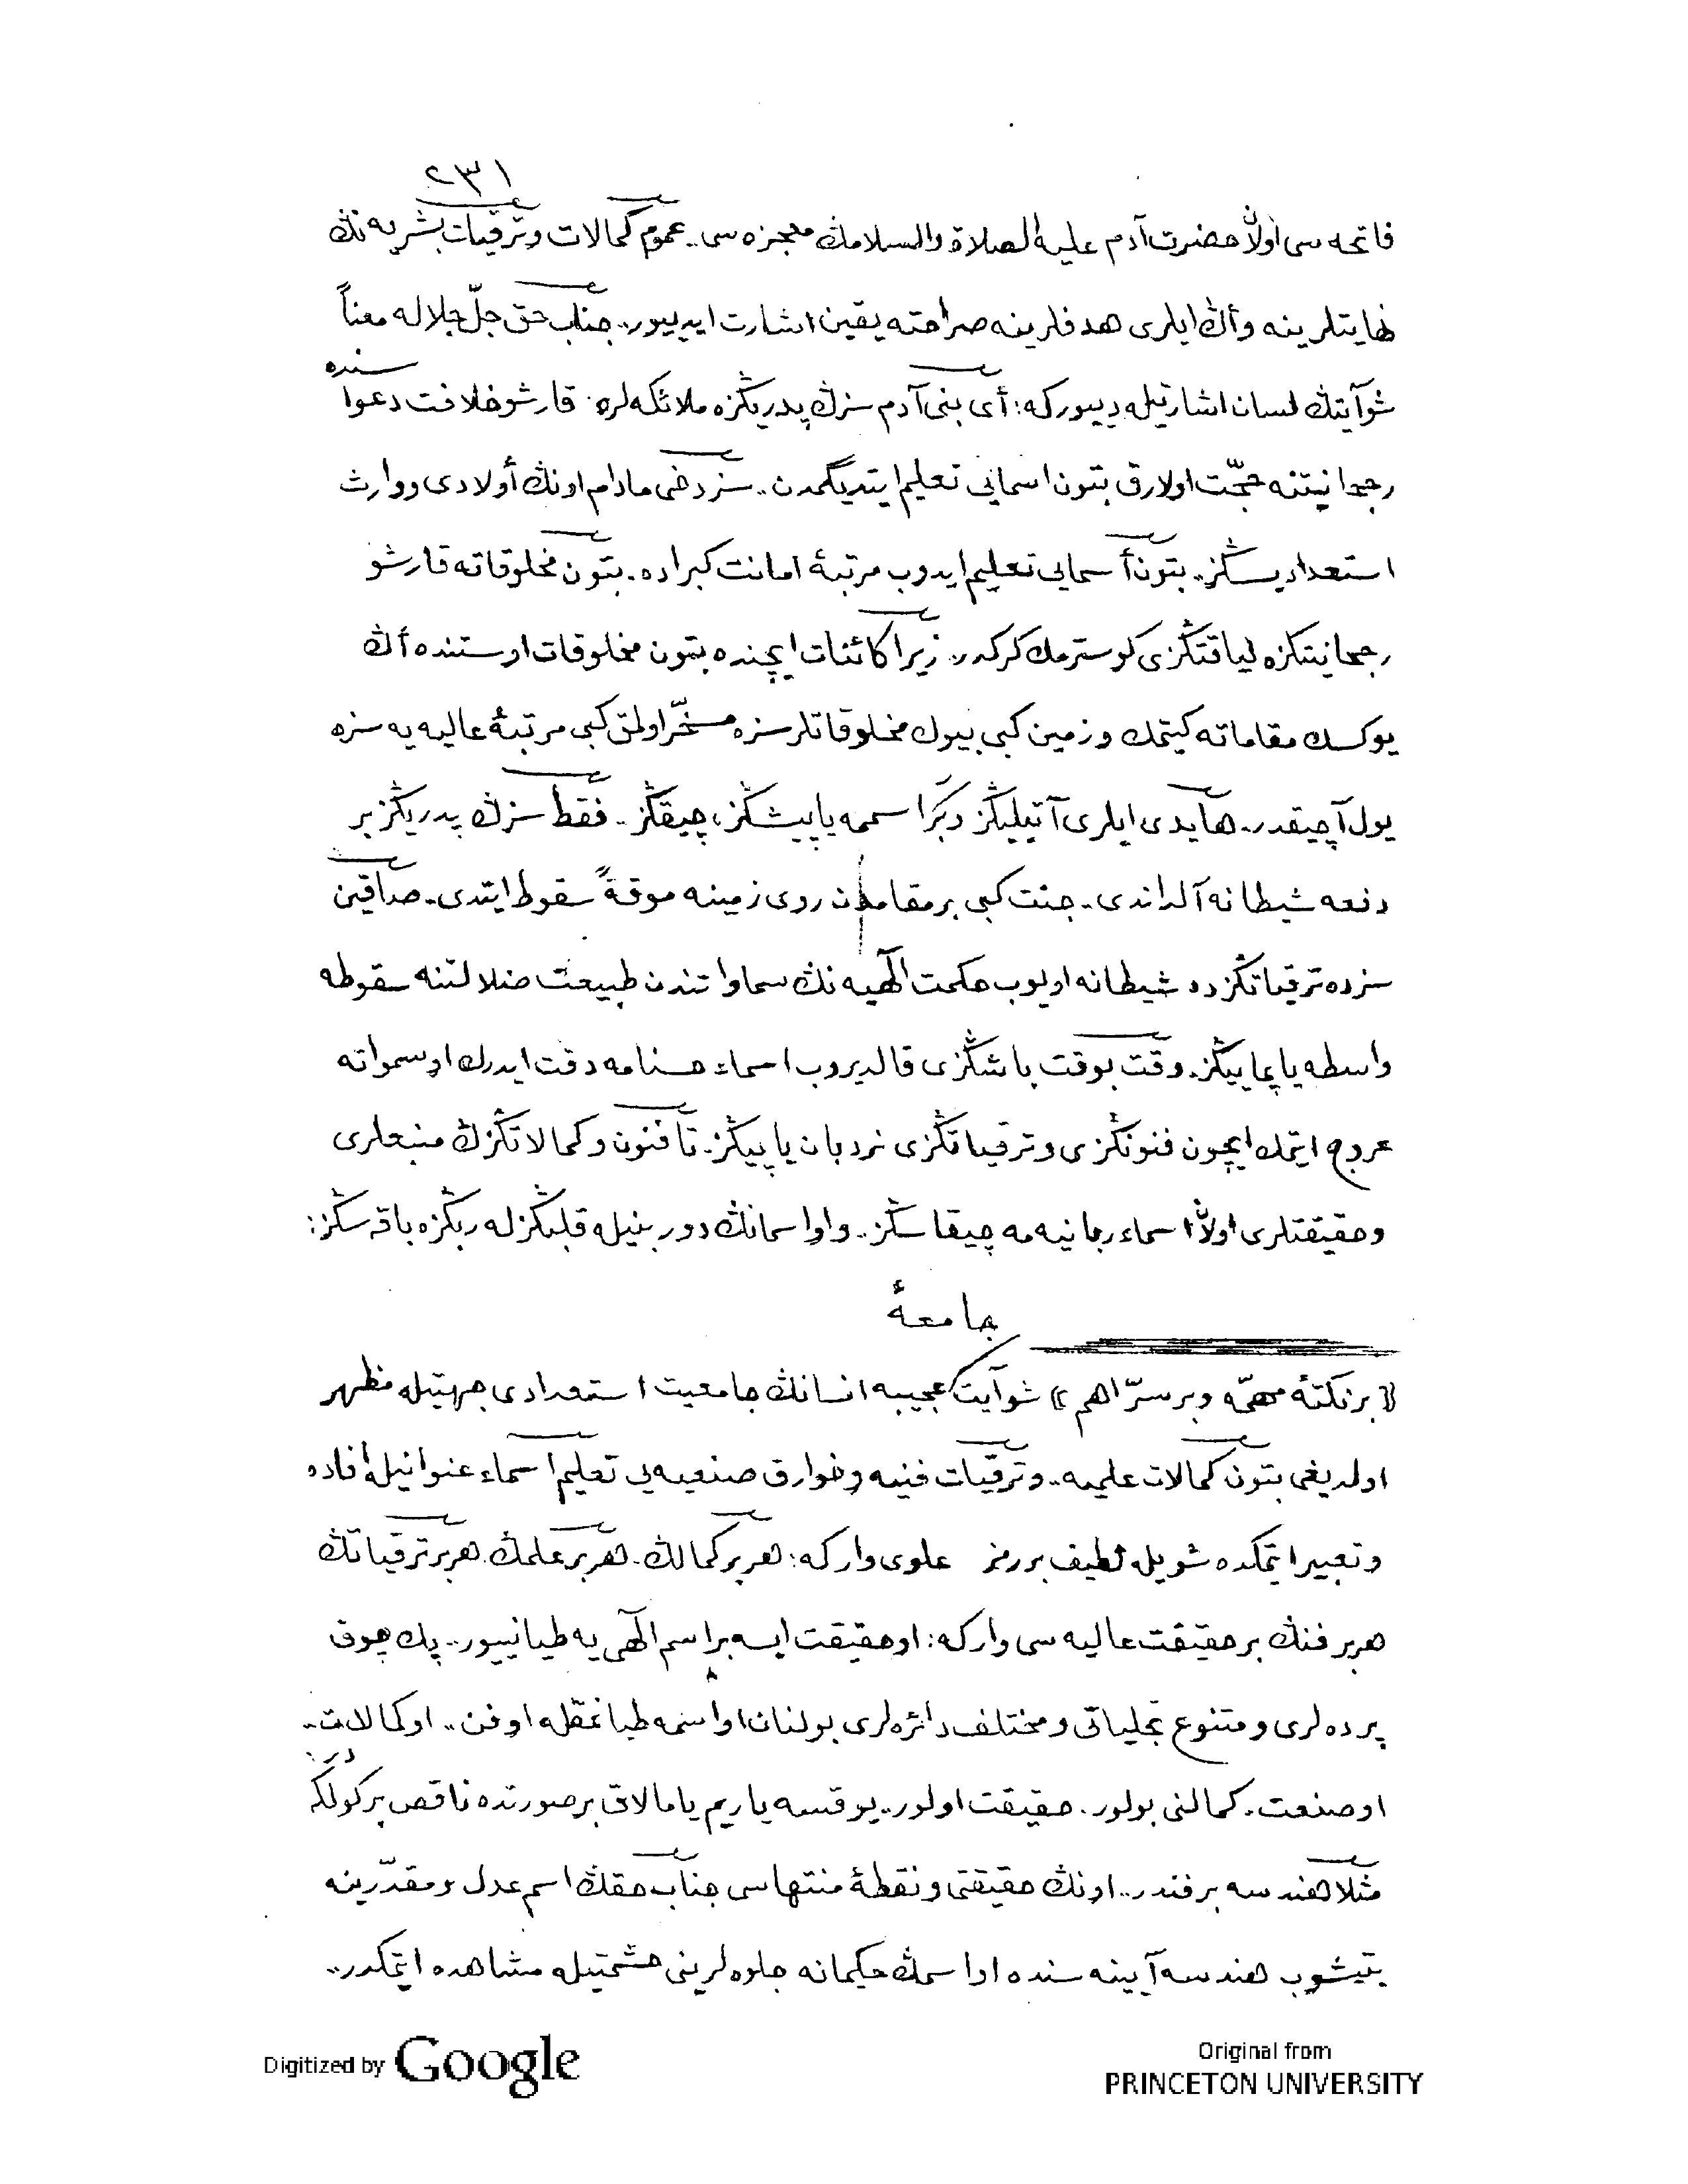 ٢٣١
فاتحه سى اولاً حضرت آدم عليه الصلاة والسلامڭ معجزه سى.. عموم كمالات وترقيات بشريه نڭ
نهايتلرينه وأڭ ايلرى هدفلرينه صراحته يقين اشارت ايدييور.. جناب حق جلّ جلاله معناً
شو آيتڭ لسان اشارتيله دييوركه: أى بنى آدم سزڭ پدريڭزه ملائكه لره قارشو خلافت دعواسنده
رجحانيتنه حجّت اولارق بتون اسمايى تعليم ايتديگمدن.. سز دخى مادام اونڭ أولادى ووارث
استعداديسڭز.. بتون أسمايى تعليم ايدوب مرتبۀ امانت كبراده.. بتون مخلوقاته قارشو
رجحانيتڭزه لياقتڭزى كوسترمك كركدر.. زيرا كائنات ايچنده بتون مخلوقات اوستنده أڭ
يوكسك مقاماته كيتمك وزمين كبى بيوك مخلوقاتلر سزه مسخّر اولمق كبى مرتبۀ عاليه يه سزه
يول آچيقدر.. هايدى ايلرى آتيليڭز وبرر اسممه ياپيشڭز، چيقڭز.. فقط سزڭ پدريڭز بر
دفعه شيطانه آلداندى.. جنت كبى بر مقامدن روى زمينه موقةً سقوط ايتدى.. صاقين
سزده ترقياتڭزده شيطانه اويوب حكمت الٰهيه نڭ سماواتندن طبيعت ضلالتنه سقوطه
واسطه ياپماييڭز.. وقت بوقت باشڭزى قالديروب اسماء حسنامه دقت ايدرك او سمواته
عروج ايتمك ايچون فنونڭزى وترقياتڭزى نردبان ياپيڭز.. تا فنون وكمالاتڭزڭ منبعلرى
وحقيقتلرى اولان اسماء ربانيه مه چيقاسڭز.. واو اسمانڭ دوربينيله قلبڭزله ربڭزه باقه سڭز:
جامعۀ
﴿ بر نكتۀ مهمّه وبر سرّ اهم ﴾ شو آيت عجيبه انسانڭ جامعيت استعدادى جهتيله مظهر
اولديغى بتون كمالات علميه.. وترقيات فنيه وخوارق صنعيه يى تعليم اسماء عنوانيله افاده
وتعبير ايتمكده شويله لطيف بر رمز علوى وار كه: هر بر كمالڭ. هر بر علمڭ. هر بر ترقياتڭ
هر بر فنڭ بر حقيقت عاليه سى وار كه: او حقيقت ايسه بر اسم الٰهى يه طيانييور.. پك چوق
پرده لرى ومتنوع تجلياتى ومختلف دائره لرى بولنان او اسمه طيانمقله او فن.. او كمالات..
او صنعت. كمالنى بولور. حقيقت اولور.. يوقسه ياريم يامالاق بر صورتده ناقص بر كولگه در:
مثلا هندسه بر فندر.. اونڭ حقيقتى ونقطۀ منتهاسى جناب حقڭ اسم عدل ومقدّرينه
يتيشوب هندسه آيينه سنده او اسمڭ حكيمانه جلوه لرينى حشمتيله مشاهده ايتمكدر..
Digitized by Google
Original from
PRINCETON UNIVERSITY